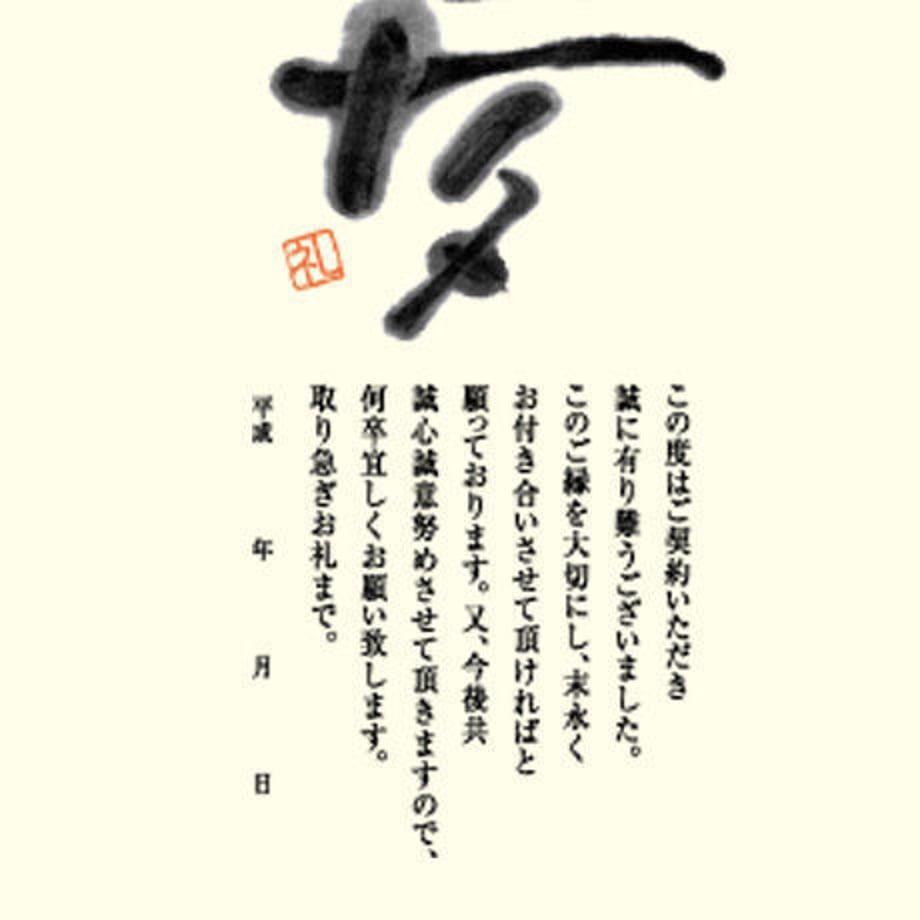 礼
この度はご契約いただき
誠に有り難うございました。
このご縁を大切にし、末永く
お付き合いさせて頂ければと
願っております。又、今後共
誠心誠意努めさせて頂きますので、
何卒宜しくお願い致します。
取り急ぎお礼まで。
平成 年 月 日